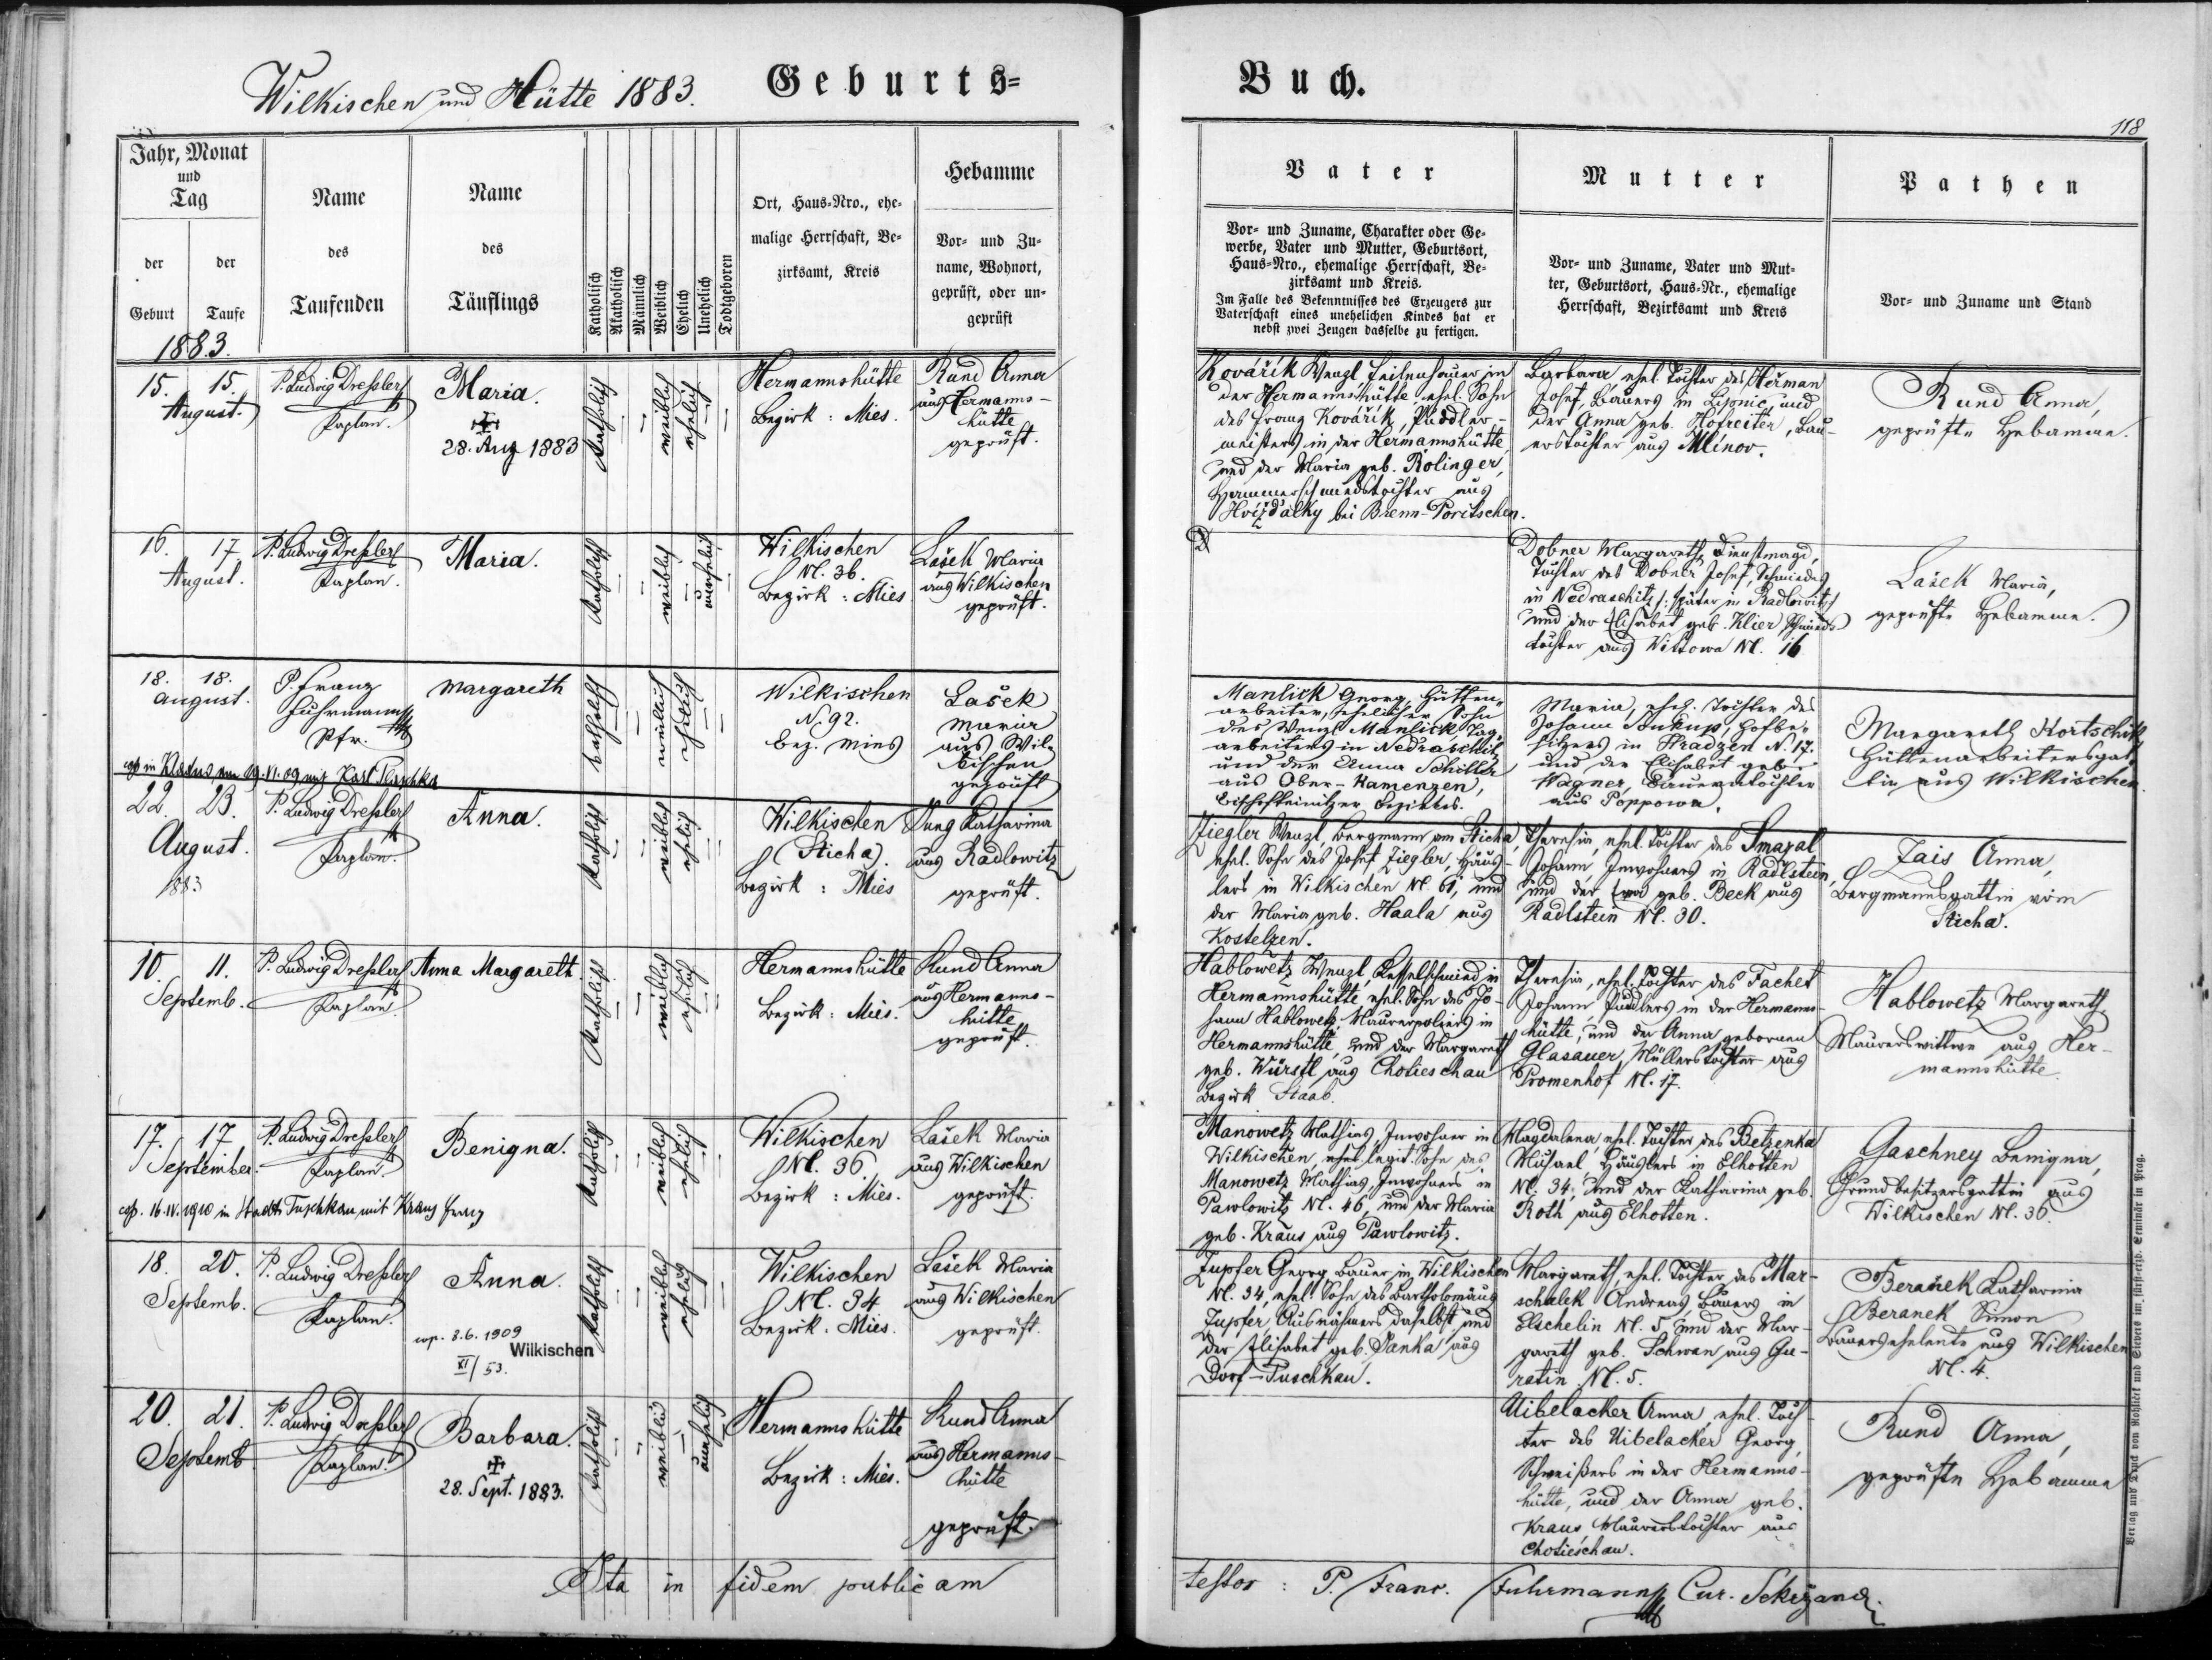 Wilkischen und Hütte 1883.
Geburts=
Buch.
118
Jahr, Monat
und
Tag
der
Geburt
der
Taufe
Name
des
Taufenden
Name
des
Täuflings
Katholisch
Akatholisch
Männlich
Weiblich
Ehelich
Unehelich
Todtgeboren
Ort, Haus-Nro., ehe-
malige Herrschaft, Be-
zirksamt, Kreis
Hebamme
Vor- und Zu-
name, Wohnort,
geprüft, oder un-
geprüft
Vater
Vor- und Zuname, Charakter oder Ge-
werbe, Vater und Mutter, Geburtsort,
Haus-Nro., ehemalige Herrschaft, Be-
zirksamt und Kreis.
Im Falle des Bekenntnisses des Erzeugers zur
Vaterschaft eines unehelichen Kindes hat er
nebst zwei Zeugen dasselbe zu fertigen.
Mutter
Vor- und Zuname, Vater und Mut-
ter, Geburtsort, Haus-Nr., ehemalige
Herrschaft, Bezirksamt und Kreis
Pathen
Vor- und Zuname und Stand
1883.
15. 15.
August.
P. Ludwig Dressler
Kaplan.
Maria.
28. Aug 1883
katholisch
weiblich
ehelich
Hermannshütte
Bezirk: Mies.
Rund Anna
aus Hermanns-
hütte
geprüft.
Kovářík Wenzl Feilenhauer in
der Hermannshütte ehel. Sohn
des Franz Kovářík, Puddler-
meisters in der Hermannshütte
und der Maria geb. Rolinger,
Hammerschmiedstochter aus
Hvížďalky bei Brenn-Poritschen.
Barbara, ehel. Tochter des Heřman
Josef, Bauers in und
der Anna geb. Hofreiter, Bau-
erstochter aus Mlinov.
Rund Anna,
geprüfte Hebamme.
16. 17
August.
P. Ludwig Dressler
Kaplan.
Maria.
katholisch
weiblich
unehelich
Wilkischen
Nl. 36.
Bezirk: Mies
Lašek Maria
aus Wilkischen
geprüft.
Dobner Margareth, Dienstmagd,
Tochter des Dobner Josef, Schmiedes
in Nedraschitz /: später in Radlowitz
und der Elisabet geb. Klier Schmieds
tochter aus Wittowa Nl. 16
Lašek Maria,
geprüfte Hebamme.
18. 18.
August.
P. Franz
Fuhrmann
Pfr.
Margareth
katholisch
weiblich
ehelich
Wilkischen
N. 92.
Bez. Mies
Lašek
Maria
aus Wil-
kischen
geprüft
Manlick Georg, Hütten-
arbeiter, ehelicher Sohn
des Wenzl Manlick, Tag-
arbeiters in Nedraschitz
und der Anna Schiller
aus Ober-Kamenzen,
Bischofteinitzer Bezirkes.
Maria, ehel. Tochter des
Johann Soukup, Hofbe-
sitzers in Hradzen N. 17.
und der Elisabet geb.
Wagner, Bauerntochter
aus Poppowa.
Margareth Kortschik
Hüttenarbeitersgat-
tin aus Wilkischen.
cop in am 19.VI.09 mit Karl
22. 23.
August.
1883
P. Ludwig Dressler
Kaplan.
Anna.
katholisch
weiblich
ehelich
Wilkischen
(Sticha).
Bezirk: Mies
Jung Katharina
aus Radlowitz
geprüft.
Ziegler Wenzl, Bergmann am Sticha,
ehel. Sohn des Josef Ziegler, Häus-
lers in Wilkischen Nl. 61, und
der Maria geb. Haala aus
Kostelzen.
Theresia, ehel. Tochter des Smazal
Johann, Inwohners in Radlstein,
und der Eva geb. Beck aus
Radlstein Nl. 30.
Zais Anna,
Bergmannsgattin vom
Sticha.
10. 11.
Septemb.
P. Ludwig Dressler
Kaplan.
Anna Margareth.
katholisch
weiblich
ehelich
Hermannshütte
Bezirk: Mies.
Rund Anna
aus Hermanns-
hütte
geprüft.
Hablowetz Wenzl, Kesselschmied in
Hermannshütte, ehel. Sohn des Jo-
hann Hablowetz, Maurerpoliers in
Hermannshütte, und der Margareth
geb. Würstl aus Chotieschau
Bezirk Staab.
Theresia, ehel. Tochter des Fachet
Johann, Puddlers in der Hermanns-
hütte, und der Anna geborenen
Glasauer, Müllerstochter aus
Promenhof Nl. 17.
Hablowetz Margareth,
Maurerswittwe aus Her-
mannshütte.
17. 17
September.
P. Ludwig Dressler
Kaplan.
Benigna.
katholisch
weiblich
ehelich
Wilkischen
Nl. 36.
Bezirk: Mies.
Lašek Maria
aus Wilkischen
geprüft.
Manowetz Mathias, Inwohner in
Wilkischen, ehel. legit. Sohn des
Manowetz Mathias, Inwohners in
Pawlowitz Nl. 46, und der Maria
geb. Kraus aus Pawlowitz.
Magdalena ehel. Tochter des Betzenka
Michael, Häuslers in Elhotten
Nl. 34, und der Katharina geb.
Roth aus Elhotten.
Gaschney Benigna,
Grundbesitzersgattin aus
Wilkischen Nl. 36.
cop. 16.IV.1910 in Stadt Tuschkau mit Kraus Franz
18. 20.
Septemb.
P. Ludwig Dressler
Kaplan.
Anna.
cop. 8.6.1909
Wilkischen
XI/53.
katholisch
weiblich
ehelich
Wilkischen
Nl. 34
Bezirk: Mies.
Lašek Maria
aus Wilkischen
geprüft.
Zupfer Georg Bauer in Wilkischen
Nl. 34, ehel. Sohn des Bartholomäus
Zupfer Ausnahmers daselbst und
der Elisabet geb. Panka aus
Dorf-Tuschkau.
Margareth, ehel. Tochter des Mar-
schalek Andreas, Bauers in
Elschelin Nl. 5 und der Mar-
gareth geb. Schwan aus Gu-
ratin Nl. 5.
Beranek Katharina
Beranek Simon
Bauerseheleute aus Wilkischen
Nl. 4.
20. 21.
Septemb.
P. Ludwig Dressler
Kaplan.
Barbara.
28. Sept. 1883.
katholisch
weiblich
unehelich
Hermannshütte
Bezirk: Mies.
Rund Anna
aus Hermanns-
hütte
geprüft.
Uibelacker Anna, ehel. Toch-
ter des Uibelacker Georg,
Schweißers in der Hermanns-
hütte, und der Anna geb.
Kraus, Maurerstochter aus
Chotieschau.
Rund Anna,
geprüfte Hebamme
Ita in fidem publicam
testor: P. Franc. Fuhrmann Cur.
Verlag und Druck von Rohliček und Sievers im fürst-erzb. Seminär in Prag.